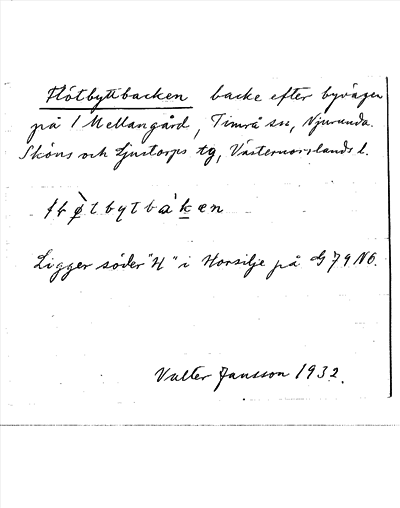 Flötbyttbacken backe efter byvägen
på 1 Mellangård, Timrå sn, Njurunda.
Sköns och Ljustorps tg, Västernorrlands l.
fløtbytbaken
Ligger söder "H" i Horsilje på G 79 NO.
Valter Jansson 1932.